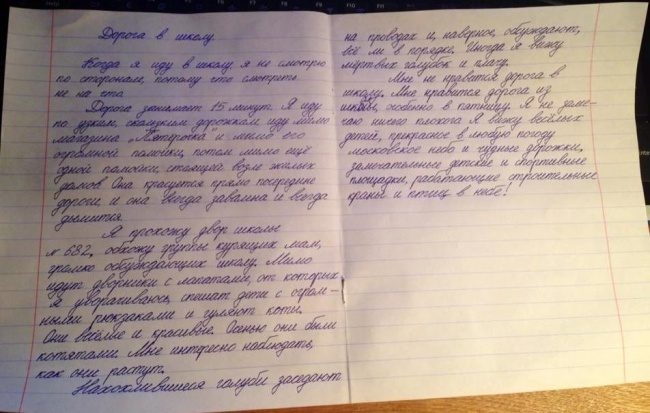 Дорога в школу
Когда я иду в школу я не смотрю
по сторонам, потому что смотреть
не на что
Дорога занимает 15 минут. Я иду
по узким, скользким дорожкам, иду мимо
магазина "Пятёрочка" и мимо его
огромной помойки, потом мимо ещё
одной помойки, стоящей возле жилых
домов Она красуется прямо посередине
дороги и она всегда завалена и всегда
дымится.
Я прохожу двор школы
N 682, обхожу группы курящих мам,
громко обсуждающих школу. Мимо
идут дворники с лопатами, от которых
я уворачиваюсь, спешат дети с огром-
ными рюкзаками и гуляют коты.
Они весёлые и красивые. Осенью они были
котятами. Мне интересно наблюдать,
как они растут.
Нахохлившиеся голуби заседают
на проводах и, наверное, обсуждают,
всё ли в порядке. Иногда я вижу
мёртвых голубок и плачу.
Мне не нравится дорога в
школу. Мне нравится дорога из
школы, особенно в пятницу. Я не заме-
чаю ничего плохого Я вижу весёлых
детей, прекрасное в любую погоду
московское небо и чудные дорожки,
замечательные детские и спортивные
площадки, работающие строительные
краны и птиц в небе!